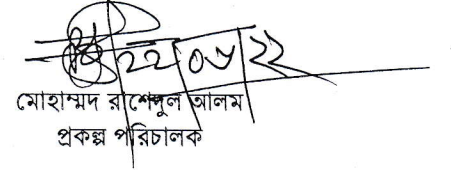 ২২/০৮/২২
মোহাম্মদ রাশেদুল আলম
প্রকল্প পরিচালক